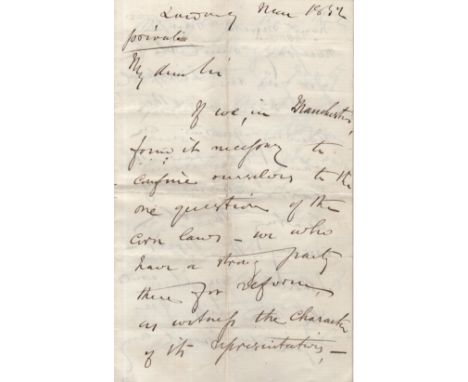 Nov 1852
private
My dear Sir
If we, in Manchester,
found it necessary to
confine ourselves to the
one question of the
corn laws - we who
have a strong party
there for reform,
as witness the character
of its representatives, -